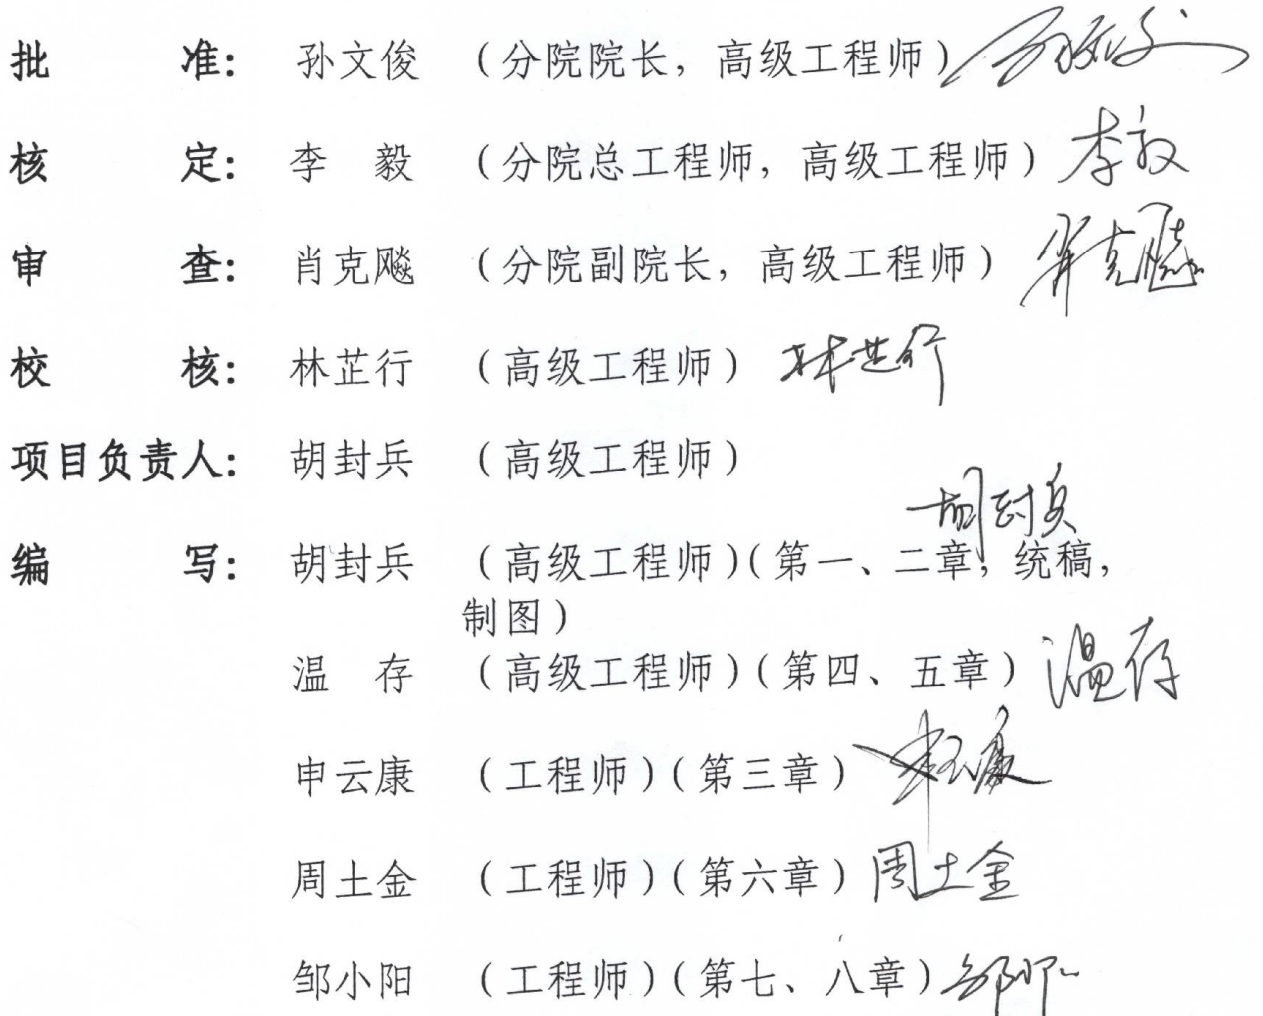 批 准: 孙文俊 (分院院长, 高级工程师)
核 定: 李 毅 (分院总工程师, 高级工程师) 李毅
审 查: 肖克飚 (分院副院长, 高级工程师) 肖克飚
校 核: 林芷行 (高级工程师) 林芷行
项目负责人: 胡封兵 (高级工程师)
胡封兵
编 写: 胡封兵 (高级工程师)(第一、二章, 统稿,
制图)
温 存 (高级工程师)(第四、五章) 温存
申云康 (工程师)(第三章) 申云康
周土金 (工程师)(第六章) 周土金
邹小阳 (工程师)(第七、八章)